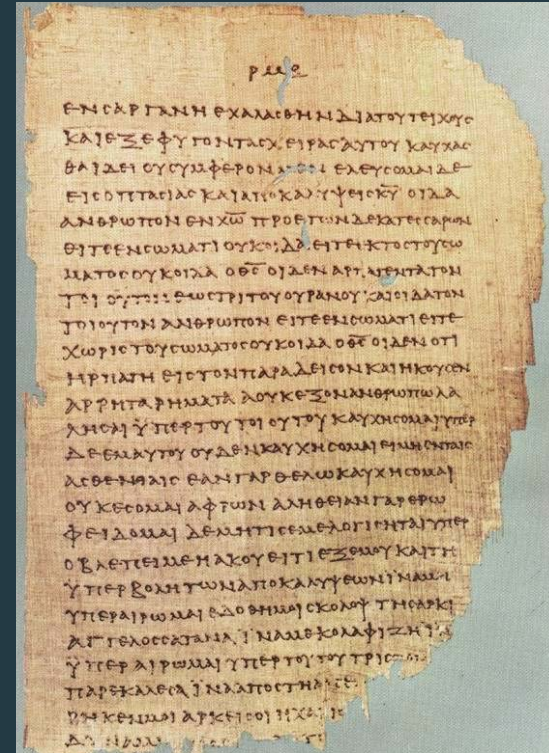 ΕΝ ΣΑΡΓΑΝΗ ΕΧΑΛΑΣΘΗΝ ΔΙΑ ΤΟΥ ΤΕΙΧΟΥΣ
ΚΑΙ ΕΞΕΦΥΓΟΝ ΤΑΣ ΧΕΙΡΑΣ ΑΥΤΟΥ ΚΑΥΧΑΣ
ΘΑΙ ΔΕΙ ΟΥ ΣΥΜΦΕΡΟΝ ΕΛΕΥΣΟΜΑΙ ΔΕ
ΕΙΣ ΟΠΤΑΣΙΑΣ ΚΑΙ ΑΠΟΚΑΛΥΨΕΙΣ Κ̅Υ̅ ΟΙΔΑ
ΑΝΘΡΩΠΟΝ ΕΝ Χ̅Ω̅ ΠΡΟ ΕΤΩΝ ΔΕΚΑΤΕΣΣΑΡΩΝ
ΕΙΤΕ ΕΝ ΣΩΜΑΤΙ ΟΥΚ ΟΙΔΑ ΕΙΤΕ ΕΚΤΟΣ ΤΟΥ ΣΩ
ΜΑΤΟΣ ΟΥΚ ΟΙΔΑ Ο Θ̅Σ̅ ΟΙΔΕΝ ΑΡΠΑΓΕΝΤΑ ΤΟΝ
ΤΟΙΟΥΤΟΝ ΕΩΣ ΤΡΙΤΟΥ ΟΥΡΑΝΟΥ ΚΑΙ ΟΙΔΑ ΤΟΝ
ΤΟΙΟΥΤΟΝ ΑΝΘΡΩΠΟΝ ΕΙΤΕ ΕΝ ΣΩΜΑΤΙ ΕΙΤΕ
ΧΩΡΙΣ ΤΟΥ ΣΩΜΑΤΟΣ ΟΥΚ ΟΙΔΑ Ο Θ̅Σ̅ ΟΙΔΕΝ ΟΤΙ
ΗΡΠΑΓΗ ΕΙΣ ΤΟΝ ΠΑΡΑΔΕΙΣΟΝ ΚΑΙ ΗΚΟΥΣΕΝ
ΑΡΡΗΤΑ ΡΗΜΑΤΑ Α ΟΥΚ ΕΞΟΝ ΑΝΘΡΩΠΩ ΛΑ
ΛΗΣΑΙ ΫΠΕΡ ΤΟΥ ΤΟΙΟΥΤΟΥ ΚΑΥΧΗΣΟΜΑΙ ΥΠΕΡ
ΔΕ ΕΜΑΥΤΟΥ ΟΥΔΕΝ ΚΑΥΧΗΣΟΜΑΙ ΕΙ ΜΗ ΕΝ ΤΑΙΣ
ΑΣΘΕΝΕΙΑΙΣ ΕΑΝ ΓΑΡ ΘΕΛΩ ΚΑΥΧΗΣΟΜΑΙ
ΟΥΚ ΕΣΟΜΑΙ ΑΦΡΩΝ ΑΛΗΘΕΙΑΝ ΓΑΡ ΕΡΩ
ΦΕΙΔΟΜΑΙ ΔΕ ΜΗ ΤΙΣ ΕΜΕ ΛΟΓΙΣΗΤΑΙ ΥΠΕΡ
Ο ΒΛΕΠΕΙ ΜΕ Η ΑΚΟΥΕΙ ΤΙ ΕΞ ΕΜΟΥ ΚΑΙ ΤΗ
ΫΠΕΡΒΟΛΗ ΤΩΝ ΑΠΟΚΑΛΥΨΕΩΝ ΪΝΑ ΜΗ
ΥΠΕΡΑΙΡΩΜΑΙ ΕΔΟΘΗ ΜΟΙ ΣΚΟΛΟΨ ΤΗ ΣΑΡΚΙ
ΑΓΓΕΛΟΣ ΣΑΤΑΝΑ ΪΝΑ ΜΕ ΚΟΛΑΦΙΖΗ
ΫΠΕΡΑΙΡΩΜΑΙ ΥΠΕΡ ΤΟΥΤΟΥ ΤΡΙΣ
ΠΑΡΕΚΑΛΕΣΑ ΪΝΑ ΑΠΟΣΤΗ
ΡΗΚΕΝ ΜΟΙ ΑΡΚΕΙ ΣΟΙ Η ΧΑΡΙΣ